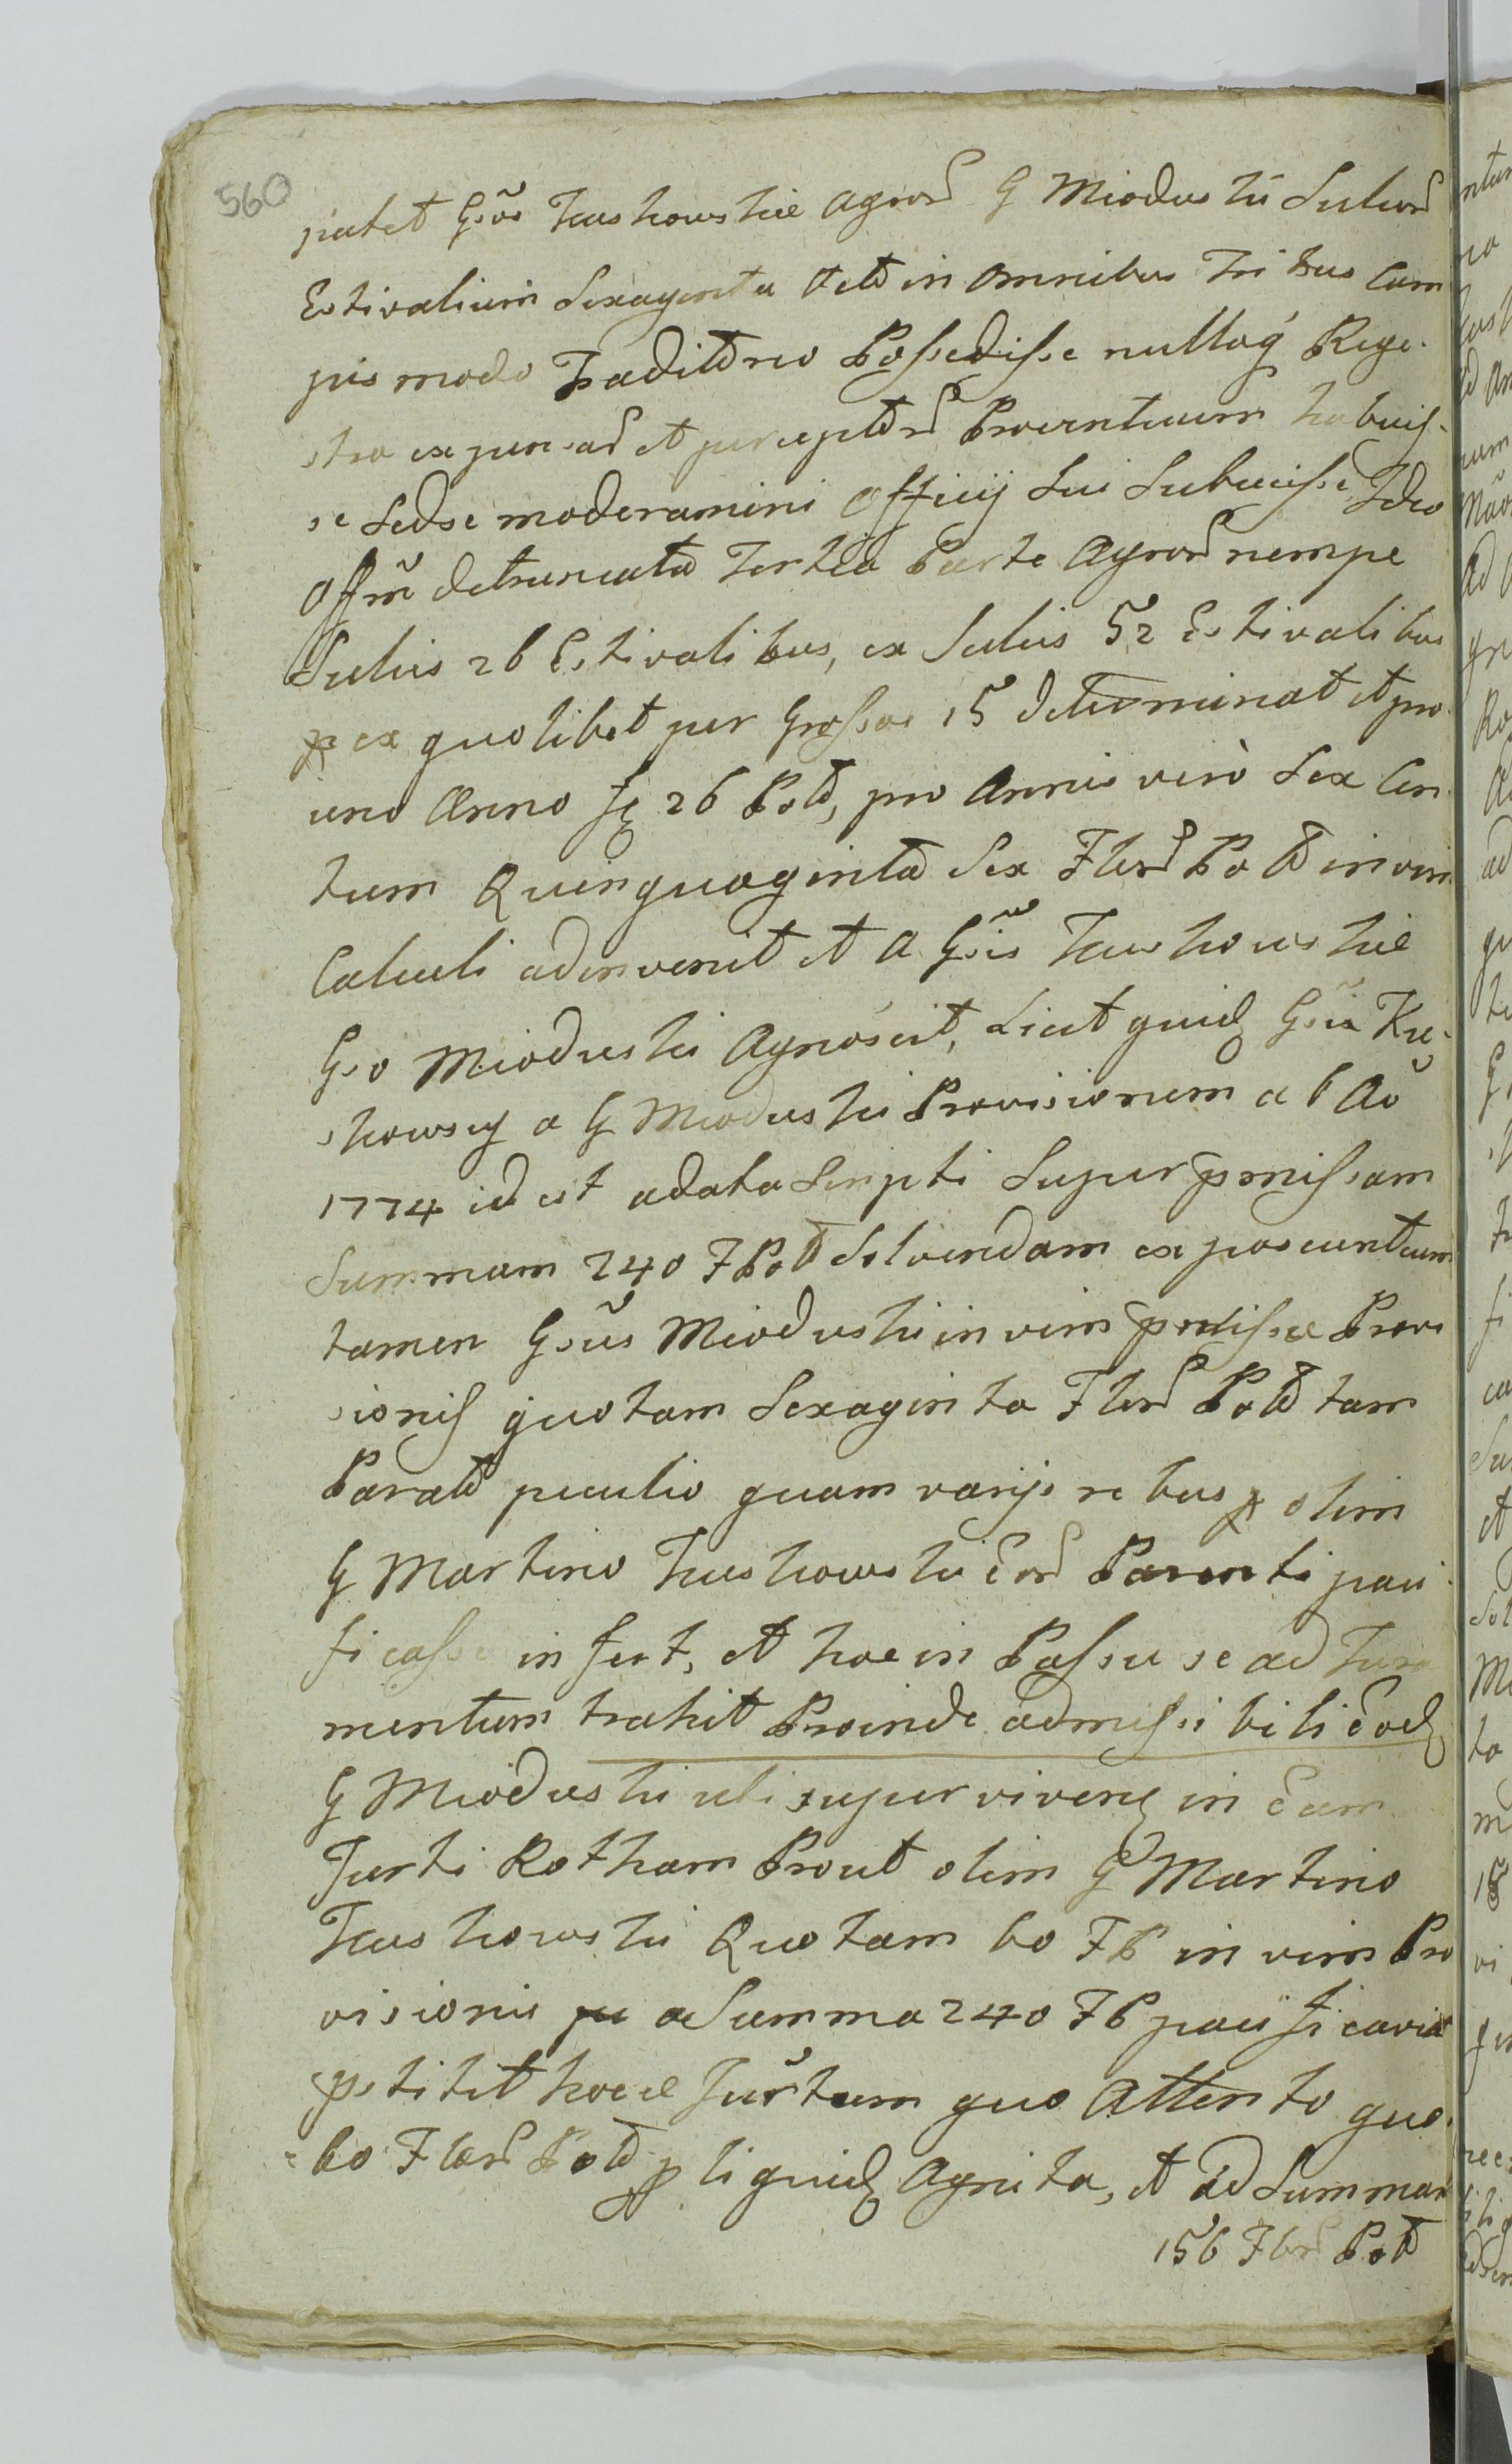 560
patet Gsõs Kuskowskie agroʒ G Mioduski Sulcoʒ
Estivalium Sexaginta Octo in Omnibus Tribus Cam
pis modo Traditorio Possedisse nullaq́ Rege-
stra expensaʒ et perceptoʒ Proventuum habuis-
se sed se moderamini Officij sui Subiecisse, Ideo
Offm̃ detruncata Tertia Parte Agroʒ nempe
Sulcis 26 Estivalibus, ex Sulcis 52 Estivalibus
ex quolibet per Grossos 15 determinat et pro
uno Anno 26 Pol, pro Annis verò Sex Cen
tum Quinquaginta Sex Floʒ Pol in vim
Calculi adinvenit et a Gsis Kuskowskie
Gso Mioduski Agnoscit, Licet quid Gsii Ku-
skowscy a G Mioduski Provisionem ab Aõ
1774 id est a data Scripti Super pmissam
Summam 240 F Pol Solvendam exposcunt cum
tamen Gsũs Mioduski in vim pmissae Provi
sionis quotam Sexaginta Floʒ Pol tam
Parato peculio quam varijs rebus olim
G Martino Kuskowski Eoʒ Parenti paci-
ficasse infert, et hoc in Passu se ad Jura
mentum trahit Proinde admissibili Eod
G Mioduski uti superviven in Eam
Jurti Rotham Prout olim G Martino
Kuskowski Quotam 60 FP in vim Pro
visionis a Summa 240 FP pacificavit
pstitit hocce Jurtum quo Attento quo-
60 Floʒ Pol p liquid Agnita, et ad Summam
156 Floʒ Pol